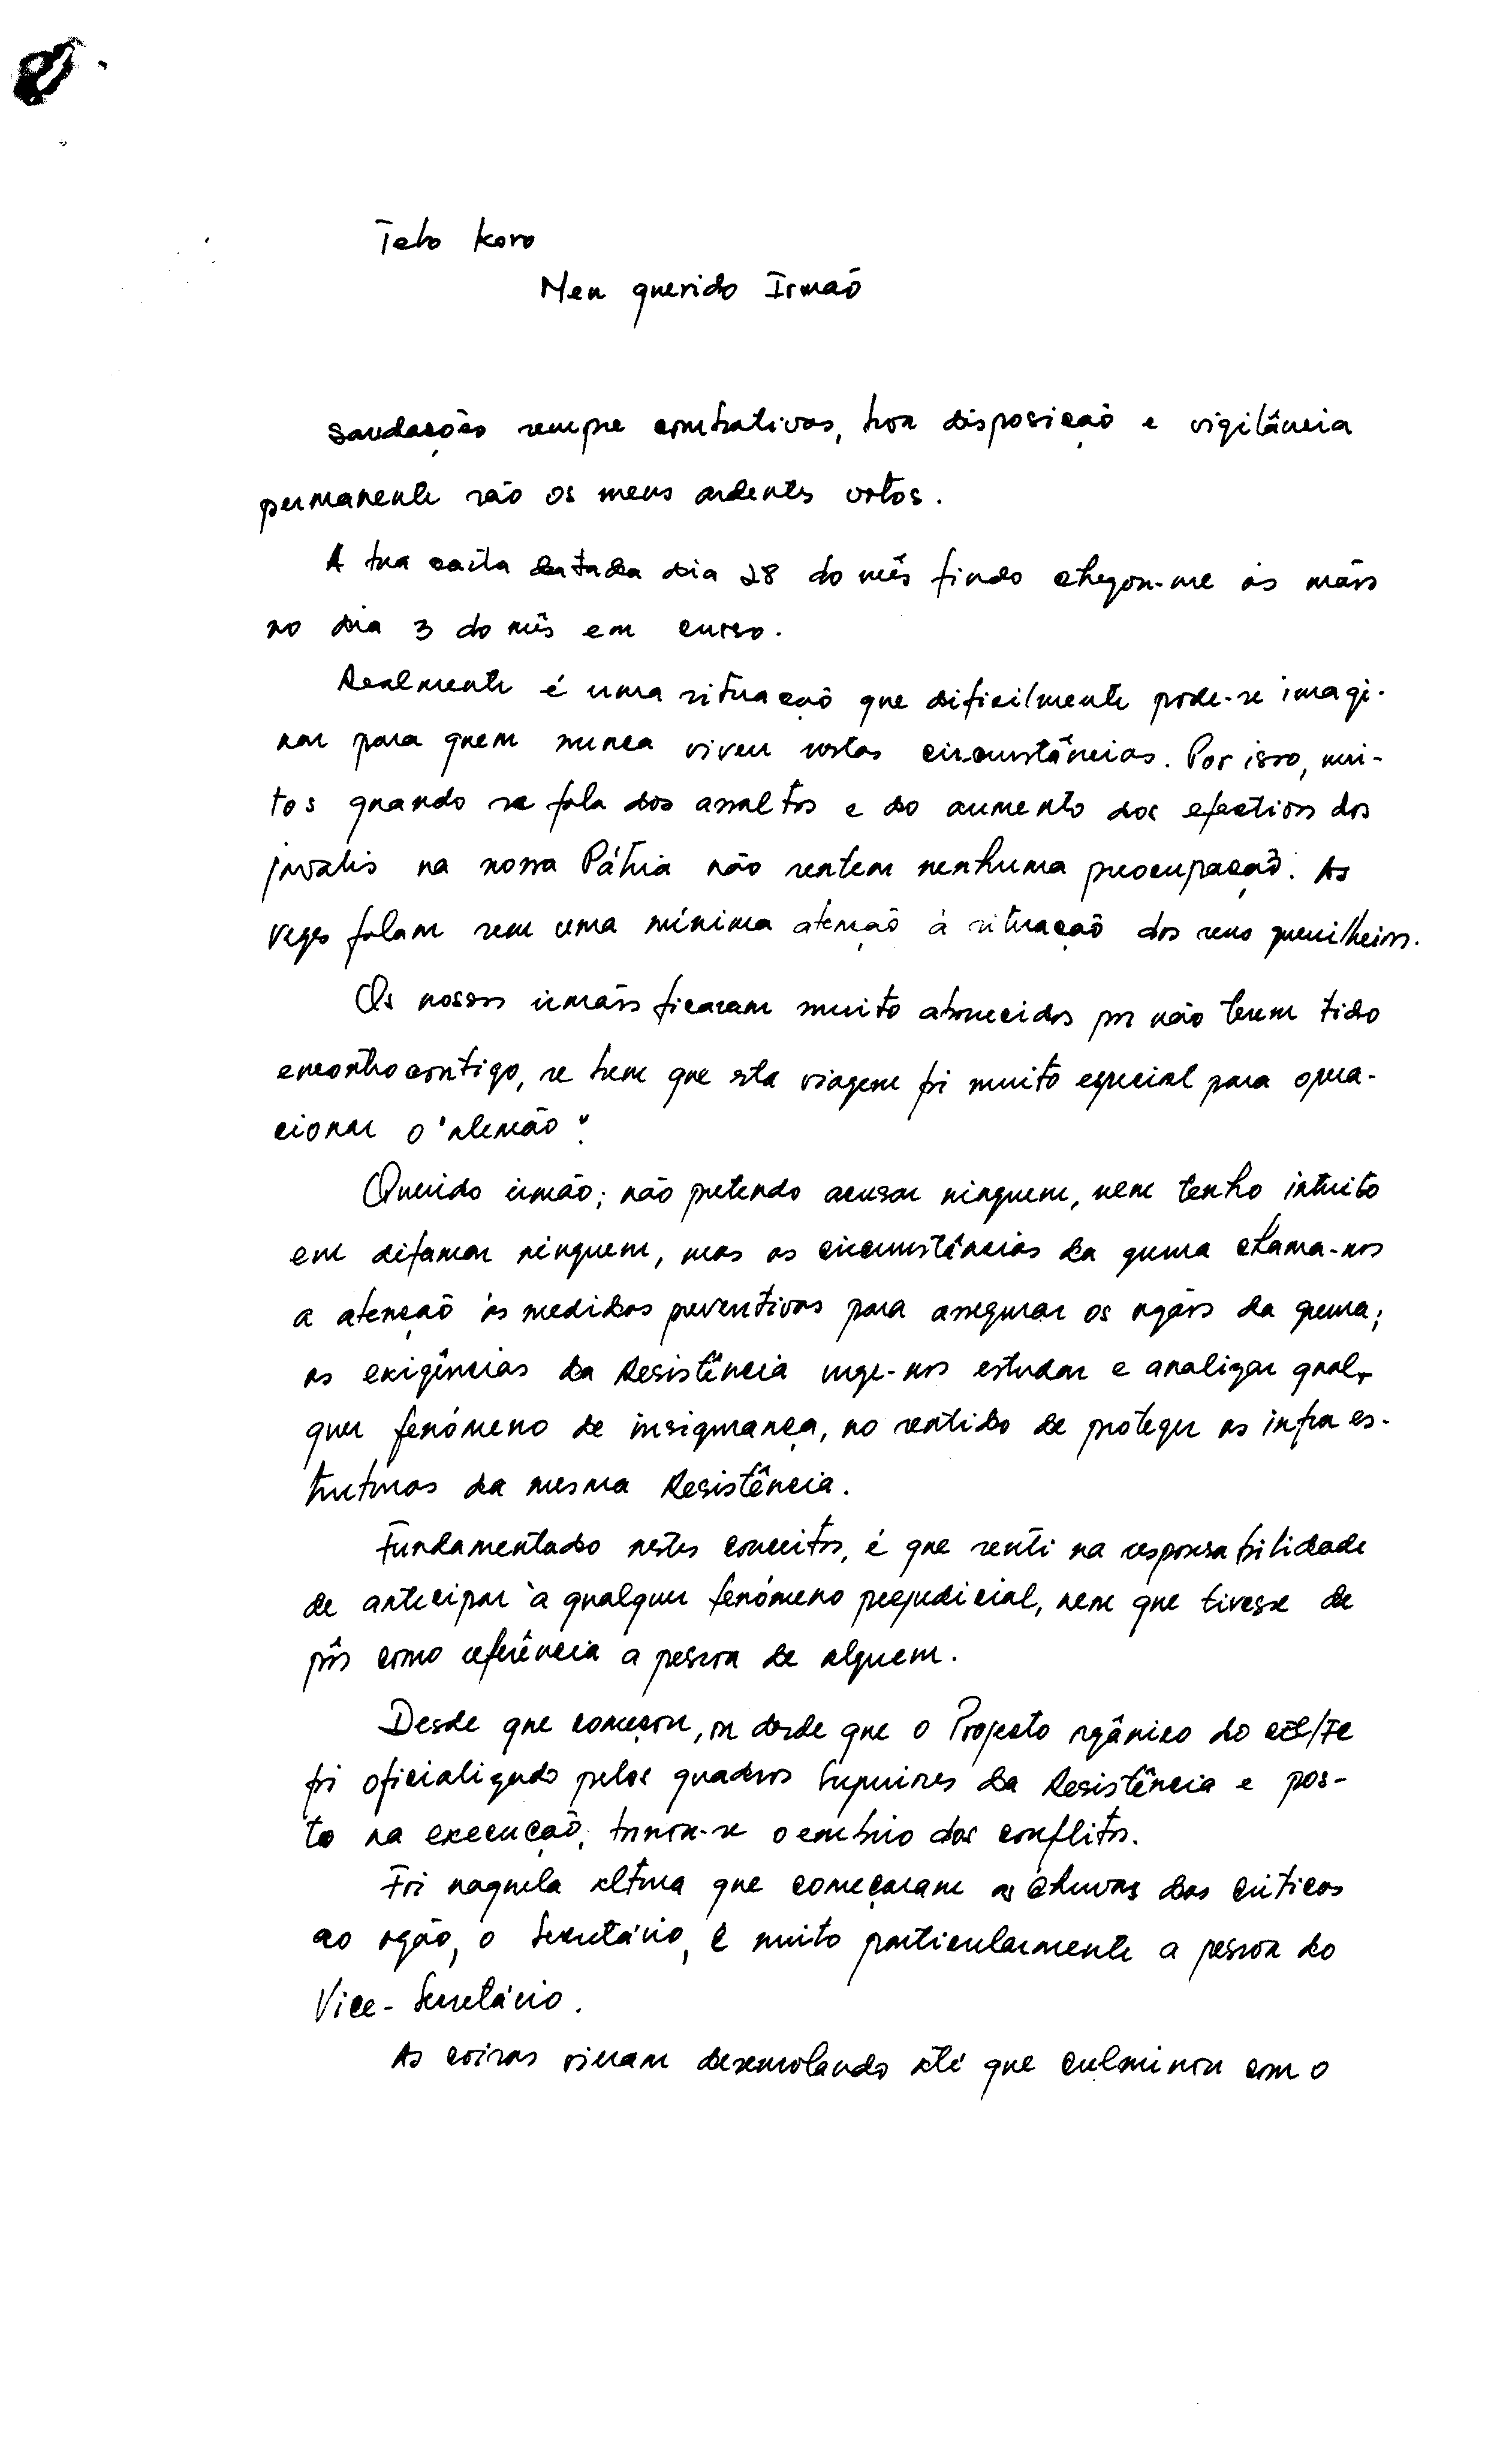 Teto Koro
Meu querido Irmaõ
Saudações sempre combativas, boa disposiçaõ e vigilância
permanente são os meus ardentes votos.
A tua carta datada dia 28 do mês findo chegou-me às mãos
no dia 3 do mês em curso.
Realmente é uma situaçaõ que dificilmente pode-se imagi-
nar para quem nunca viveu nestas circunstâncias. Por isso, mui-
tos quando se fala dos assaltos e do aumento dos efectivos dos
javalis na nossa Pátria não sentem nenhuma preocupaçaõ. As
vezes falam sem uma mínima atençaõ à situaçaõ dos seus guerrilheiros.
Os nossos irmãos ficaram muito aborrecidos por não terem tido
encontro contigo, se bem que esta viagem foi muito especial para opera-
cionar o "alemão".
Querido irmão; não pretendo acusar ninguem, nem tenho intuito
em difamar ninguem, mas as circunstâncias da guerra chama-nos
a atençaõ às medidas preventivas para assegurar os orgãos da guerra;
as exigências da Resistência urge-nos estudar e analizar qual-
quer fenómeno de insigurança, no sentido de proteger as infra es-
truturas da mesma Resistência.
Fundamentado nestes conceitos, é que senti na responsabilidade
de antecipar à qualquer fenómeno prejudicial, nem que tivesse de
pôr como referência a pessoa de alguem.
Desde que começou, ou desde que o Projecto orgânico do CEL/FC
foi oficializado pelos quadros Superiores da Resistência e pos-
to na execuçaõ, tornou-se o embrio dos conflitos.
Foi naquela altura que começaram as chuvas das críticas
ao orgão, o Secretário, e muito particularmente a pessoa do
Vice-Secretário.
As coisas vieram desenrolando até que culminou com o